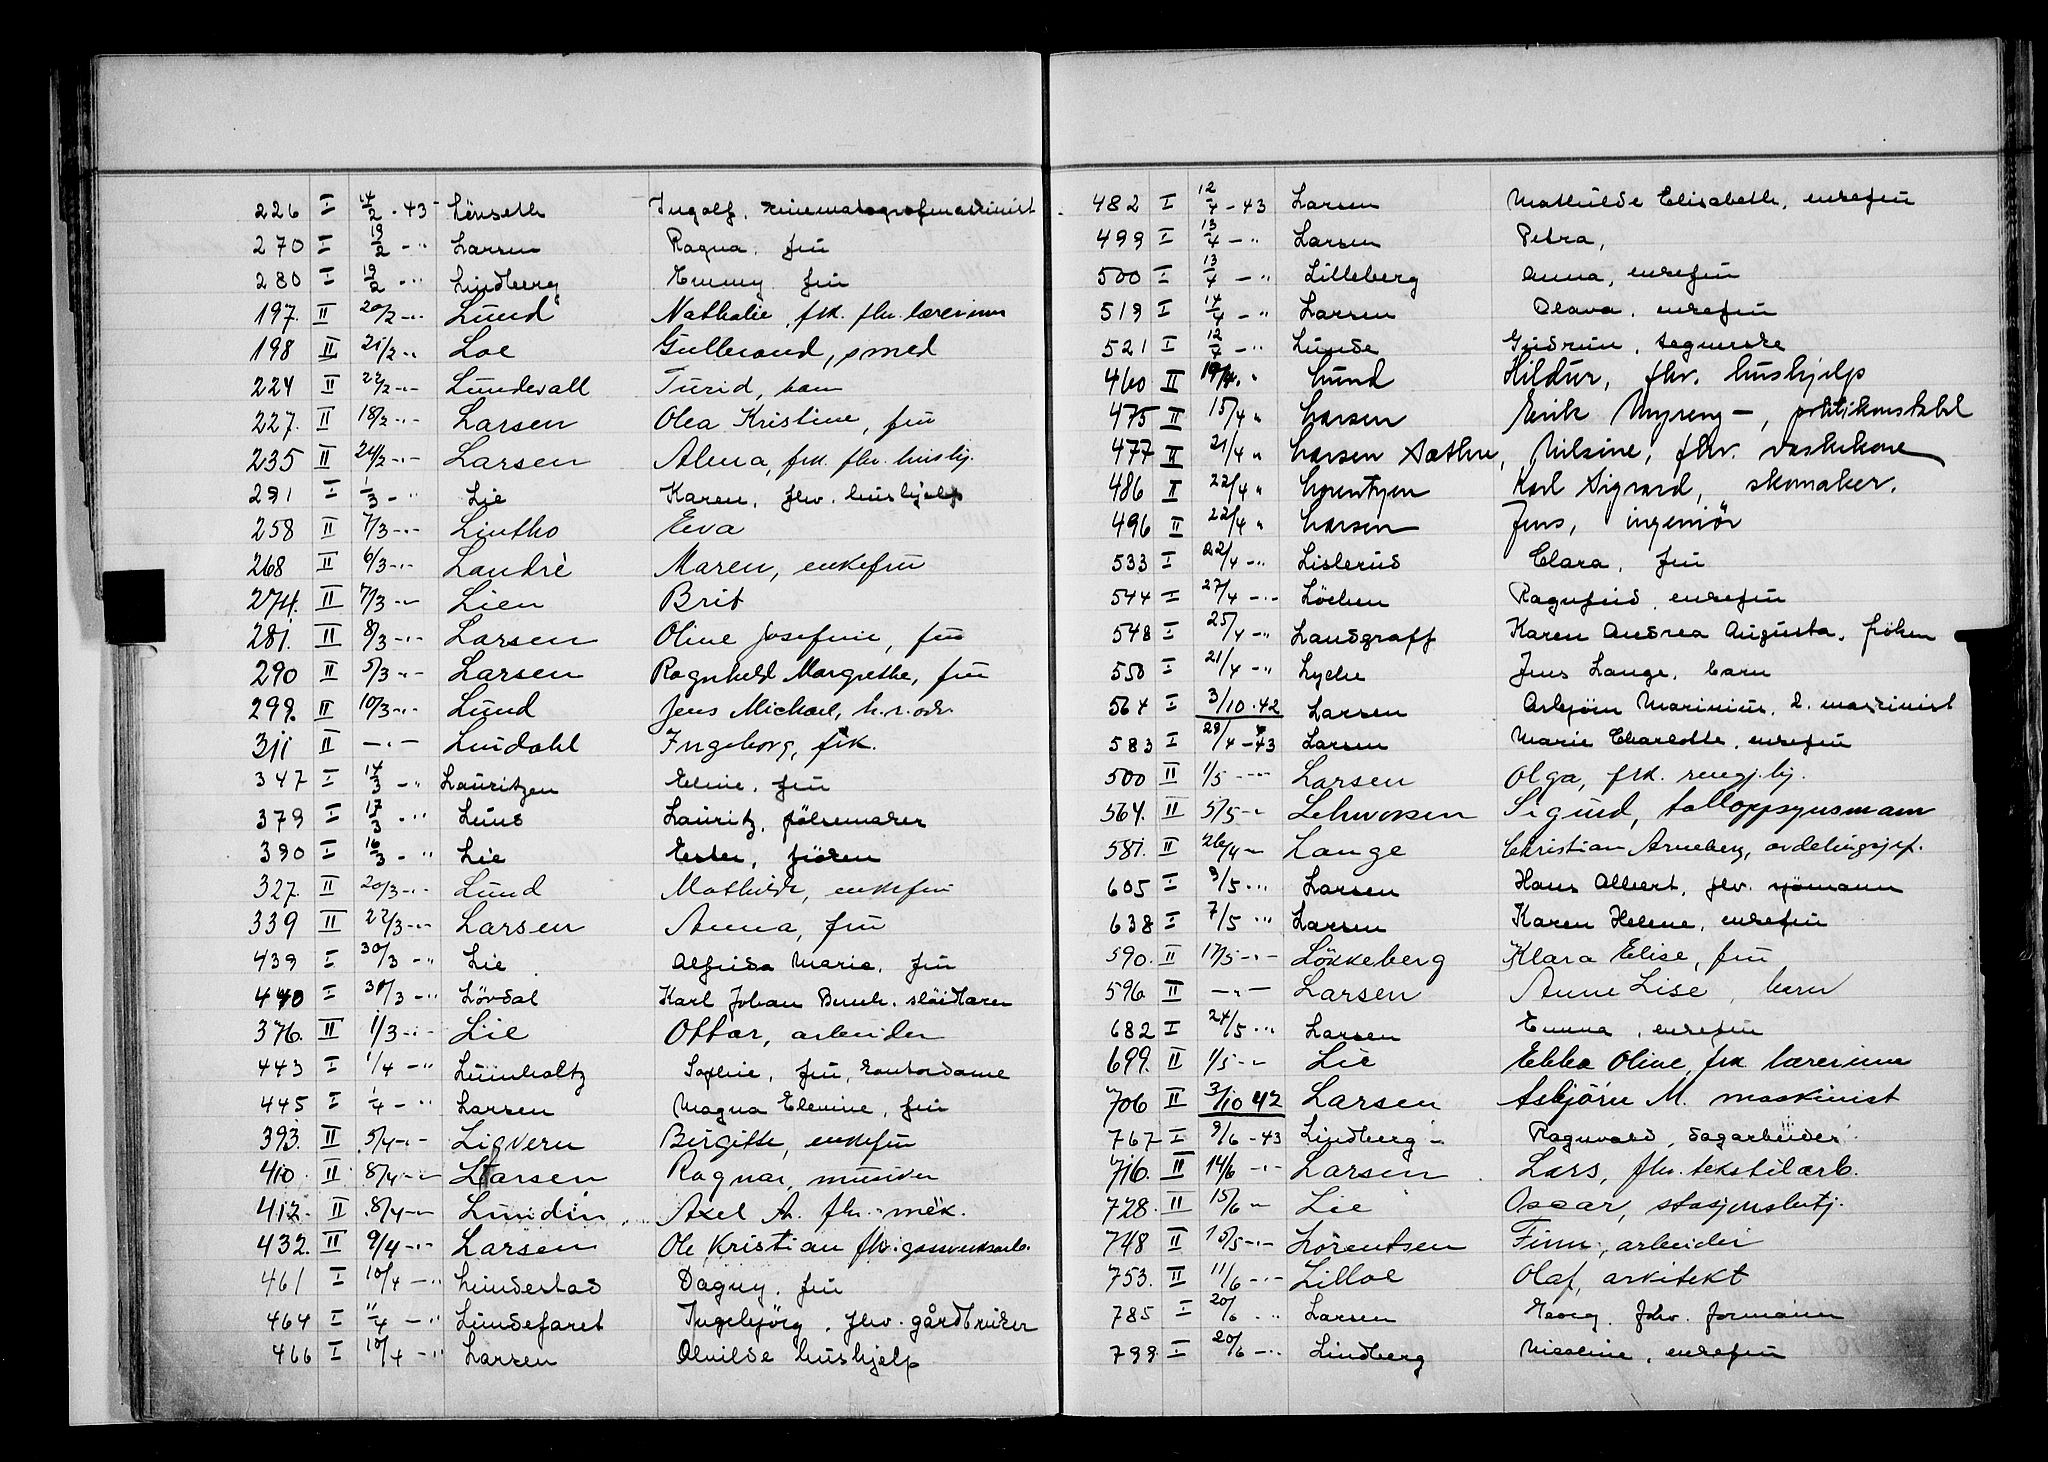 226 I 14/2 - 43 Lönseth Ingolf, kinematografmaskinist
270 I 19/2 - " Larsen Ragna, fru
280 I 19/2 - " Lindberg Emmy, fru
197. II 20/2 - " Lund Nathalie, frk. fhv. lærerinne
198 II 21/2 - " Loe Gulbrand, smed
224 II 22/2 - " Lundevall Turid, barn
227. II 18/2 - " Larsen Olea Kristine, fru
235 II 24/2 - " - Larsen Alma, frk. fhv. hushj.
291 I 1/3 - " Lie Karen, fhv. hushjelp
258 II 7/3 - " - Lintho Eva
268 II 6/3 - " - Landré Maren, enkefru
274. II 7/3 - " - Lien Brit
281. II 8/3 - " - Larsen Oline Josefine, fru
290 II 5/3 - " - Larsen Ragnhild Margrethe, fru
299. II 10/3 - " - Lund Jens Michael, h.r.adv.
311 II - " - Lindahl Ingeborg, frk.
347 I 14/3 - " Lauritzen Eline, fru
379 I 17/3 - " Lund Lauritz, pölsemaker
390 I 16/3 - " Lie Ester, fröken
327. II 20/3 - " - Lund Mathilde, enkefru
339 II 22/3 - " - Larsen Anna, fru
439 I 30/3 - " Lie Alfrida Marie, fru
440 I 31/3 - " Lövdal Karl Johan Bernh. slöidlærer
376. II 1/3 - " - Lie Ottar, arbeider
443 I 1/4 - " Lumholtz Sophie, fru, kontordame
445 I 1/4 - " Larsen Magna Elenine, fru
393. II 5/4 - " - Ligvern Birgitte, enkefru
410. II 8/4 - " - Larsen Ragnar, musiker
412. II 8/4 - " - Lundin Axel A. fhv. mek.
432. II 9/4 - " - Larsen Ole Kristian fhv. gassverksarb.
461 I 10/4 - " Lundestad Dagny, fru
464 I 11/4 - " Lundefaret Ingebjörg, fhv. gårdbruker
466 I 10/4 - " Larsen Alvilde hushjelp
482 I 12/4 - 43 Larsen Mathilde Elisabeth, enkefru
499 I 13/4 - " Larsen Petra,
500 I 13/4 - " Lilleberg Anna, enkefru
519 I 14/4 - " Larsen Olava, enkefru
521 I 12/4 - " Lunde Gudrun, tegnerske
460 II 19/4 " Lund Hildur, fhv. hushjelp
475 II 15/4 " Larsen Erik Myreng -, politikonstabel
477 II 21/4 " Larsen Sæthre, Nilsine, fhv. vaskekone
486 II 22/4 " Lorentzen Karl Sigvard, skomaker.
496 II 22/4 " Larsen Jens, ingeniør
533 I 22/4 - " Lislerud Clara, fru
544 I 27/4 - " - Löchen Ragnfrid, enkefru
548 I 25/4 - " Landgraff Karen Andrea Augusta, fröken
550 I 21/4 - " Lyche Jens Lange, barn
564 I 3/10 - 42 Larsen Asbjörn Marinius, 2. maskinist
583 I 28/4 - 43 Larsen Marie Charlotte, enkefru
500 II 1/5 - " - Larsen Olga, frk. rengj.hj.
564. II 5/5 - " Lehworsen Sigurd, tolloppsynsmann
581. II 26/4 - " Lange Christian Arneberg, avdelingssjef.
605 I 9/5 - " Larsen Hans Albert, fhv. sjömann
638 I 7/5 - " Larsen Karen Helene, enkefru
590. II 17/5 - " - Lökkeberg Klara Elise, fru
596 II - " - Larsen Anne Lise, barn
682 I 24/5 - " Larsen Emma, enkefru
699. II 1/5 - " Lie Ebba Oline, frk. lærerinne
706 II 3/10 42 Larsen Asbjörn M. maskinist
767 I 9/6 - 43 Lindberg - Ragnvald, sagarbeider
716. II 14/6 - " - Larsen Lars, fhv. tekstilarb.
728. II 15/6 " Lie Oscar, stasjonsbetj.
748 II 15/5 - " - Lorentsen Finn, arbeider
753. II 11/6 - " - Lilloe Olaf, arkitekt
785 I 20/6 - " Larsen Georg, fhv. formann
799 I 20/6 - " Lindberg Nicoline, enkefru